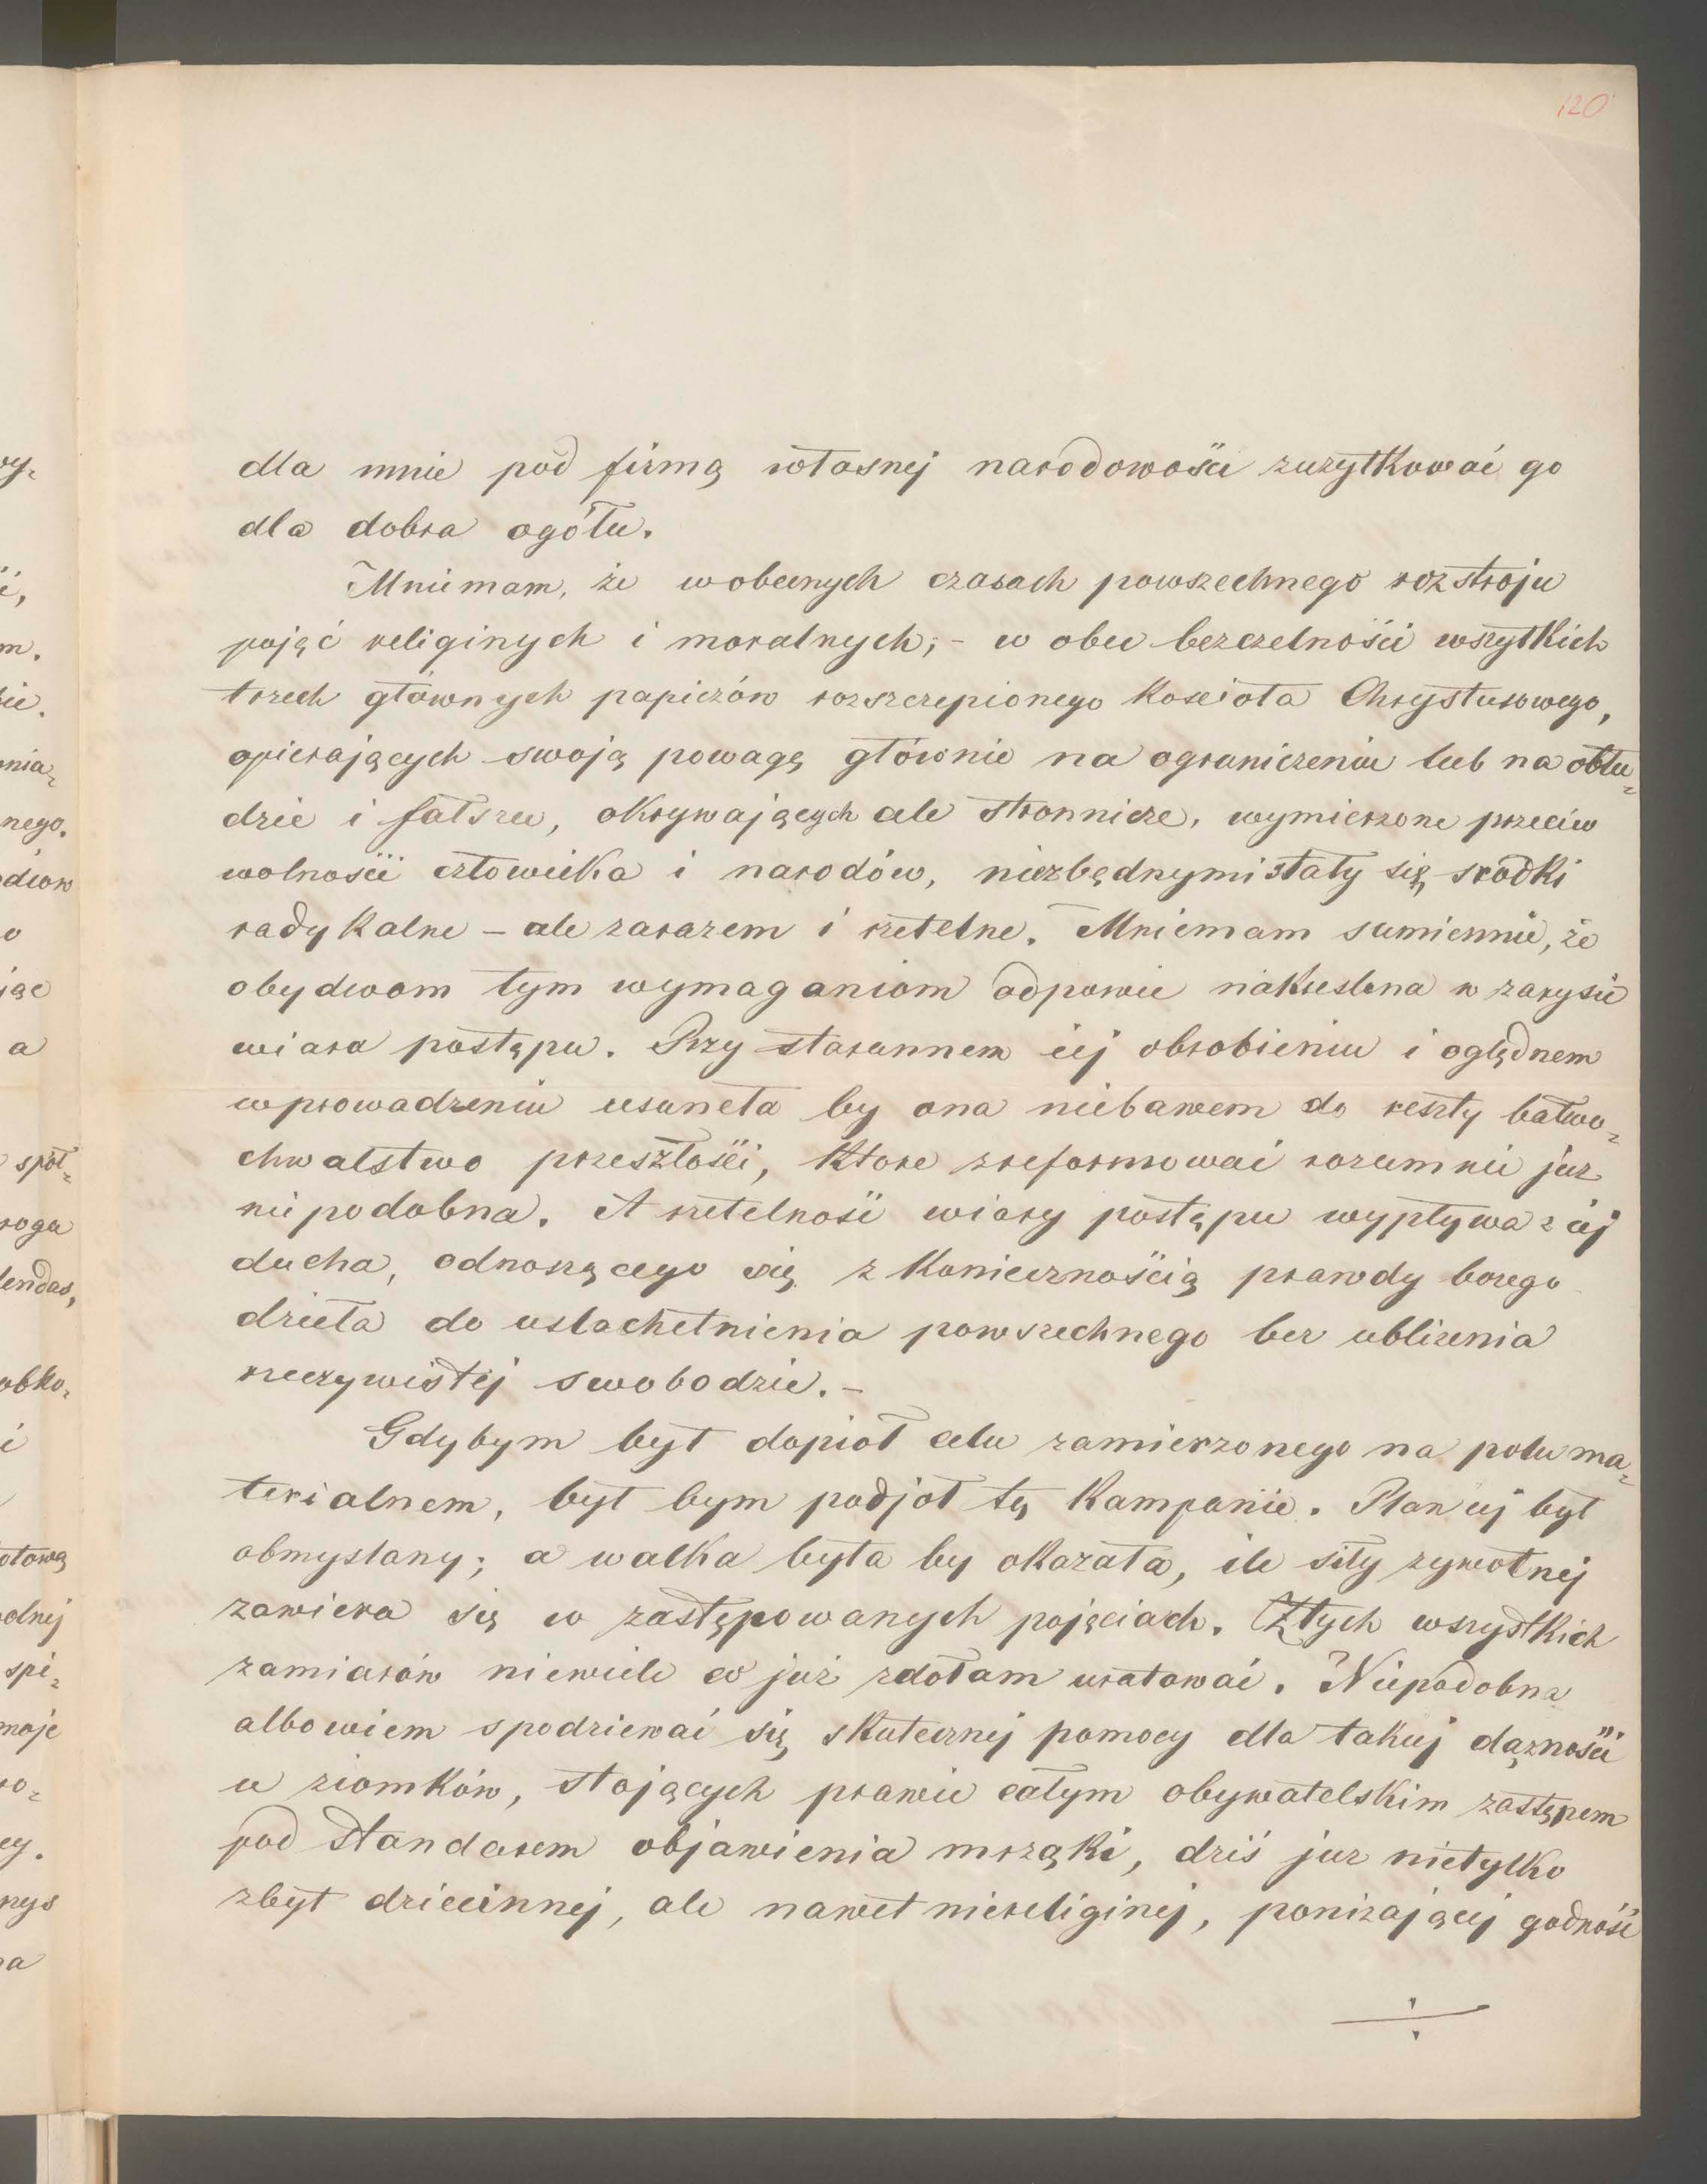 120
dla mnie pod firmą własnej narodowości zużytkować go
dla dobra ogółu.
Mniemam, że wobecnych czasach powszechnego rozstroju
pojęć religinych i moralnych; - w obec bezczelności wszytkich
trzech głównych papieżów rozszczepionego Kościoła Chrystusowego,
opierających swoją powagę głównie na ograniczeniu lub na obłu=
dzie i fałszu, okrywających cele stronnicze, wymierzone przeciw
wolności człowieka i narodów, niezbędnymi stały się srodki
radykalne - ale zarazem i rzetelne. Mniemam sumiennie, że
obydwom tym wymaganiom odpowie nakreslona w zarysie
wiara postępu. Przy starannem jej obrobieniu i oględnem
wprowadzeniu usuneła by ona niebawem do reszty bałwo=
chwalstwo przeszłości, Ktore zreformować rozumnie juz
niepodobna. A rzetelność wiary postępu wypływa z jej
ducha, odnoszącego się z Koniecznością prawdy bozego
dzieła do uslachetnienia powszechnego bez ublizenia
rzeczywistéj swobodzie. -
Gdybym był dopioł celu zamierzonego na polu ma=
terialnem, był bym podjoł tę Kampanie. Plan jej był
obmyslany; a walka była by okazała, ile siły zywotnej
zawiera się w zastępowanych pojęciach. Z tych wszystkich
zamiarów niewiele co już zdołam uratować. Niepodobna
albowiem spodziewać się skutecznej pomocy dla takiej dążności
u ziomków, stojących prawie całym obywatelskim zastępem
pod standarem objawienia mrząki, dziś juz nietylko
zbyt dziecinnej, ale nawet niereliginej, ponizającej godność